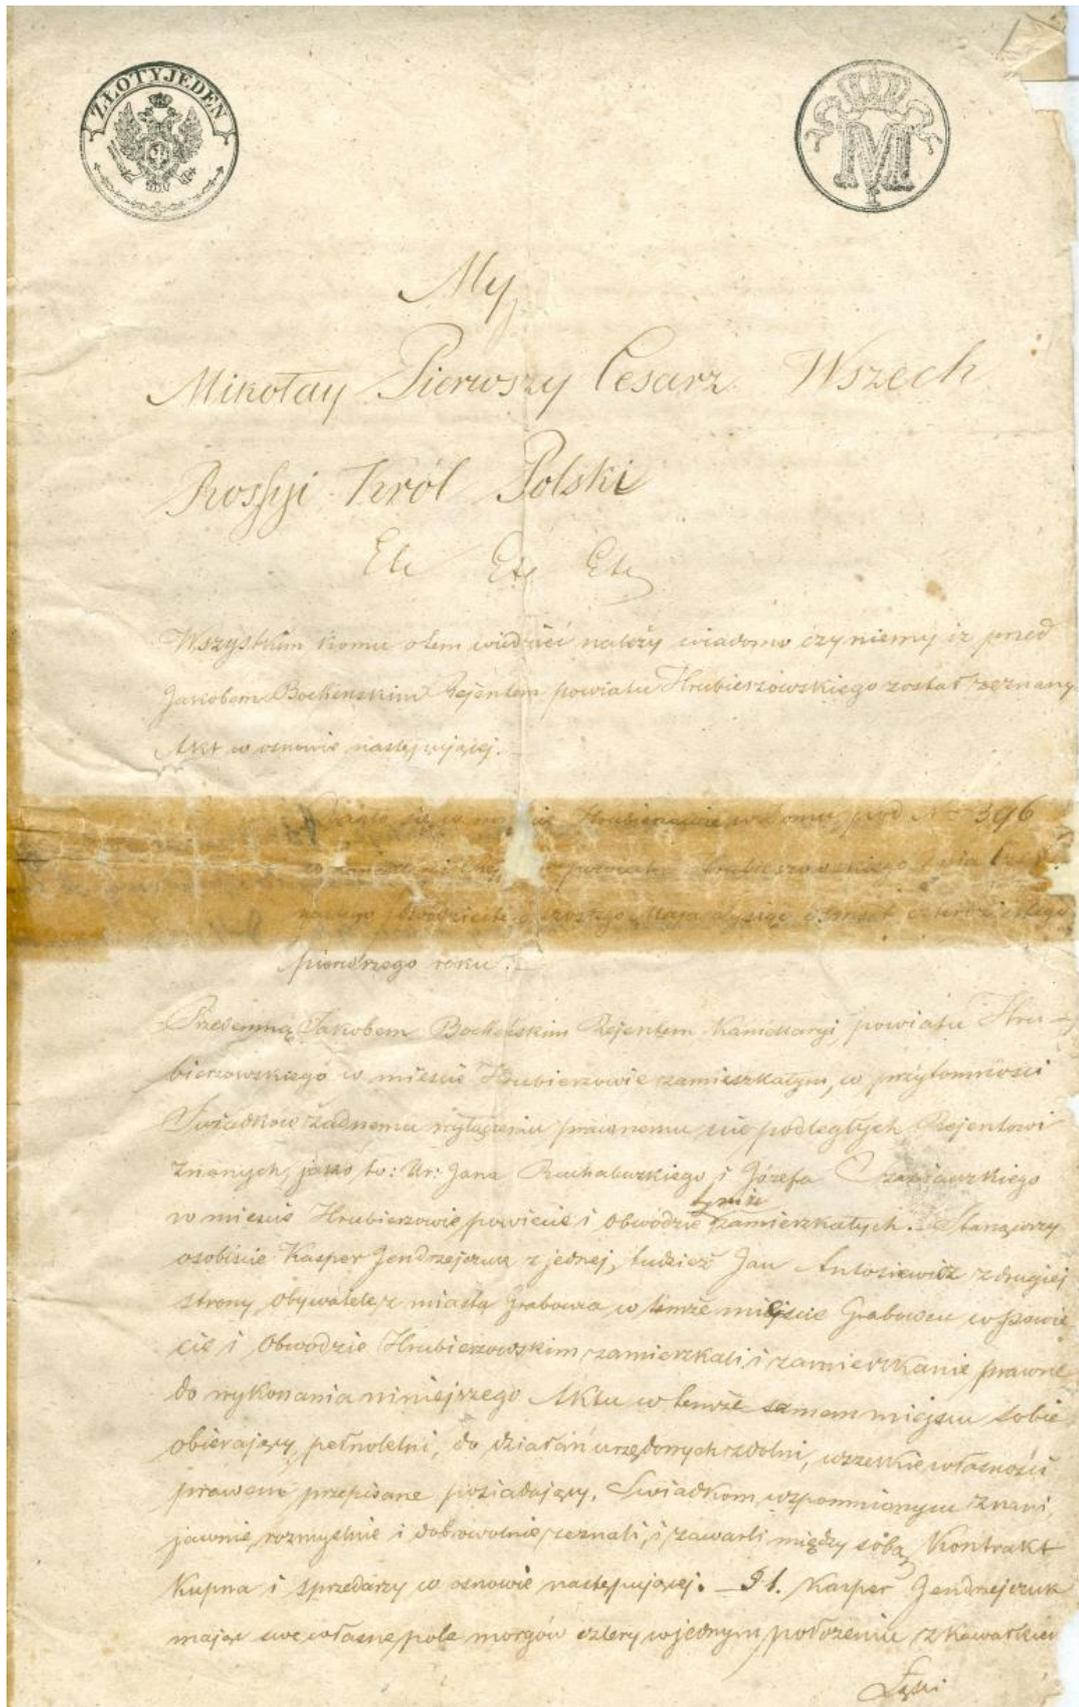 ZŁOTY JEDEN
M
My
Mikołay Pierwszy Cesarz Wszech
Rossyi Król Polski
Etc Etc Etc
Wszystkim komu otem wiedzieć należy wiadomo czyniemy iz przed
Jakobem Bochenskim Rejentem powiatu Hrubieszowskiego został zeznany
Akt w osnowie następującej.
Działo się w mieście Hrubieszowie w domu pod Nr 396
powiatu Hrubieszowskiego dnia
dwudziestego szóstego Maja tysiąc ośmset czterdziestego
pierwszego roku.
Przedemną Jakobem Bocheńskim Rejentem Kancellaryi powiatu Hru-
bieszowskiego w mieście Hrubieszowie zamieszkałym, w przytomności
Świadków żadnemu wyłączeniu prawnemu nie podległych Rejentowi
znanych, jako to: Ur: Jana i Józefa
w mieście Hrubieszowie powiecie i Obwodzie tymże zamieszkałych. Stanąwszy
osobiście Kasper Jendrzejczuk z jednej, tudzież Jan Antosiewicz z drugiej
strony, Obywatele z miasta Grabowca w temże mieście Grabowcu w Powie
cie i Obwodzie Hrubieszowskim zamieszkali i zamieszkanie prawne
do wykonania niniejszego Aktu w temże samem miejscu sobie
obierający, pełnoletni, do działań urzędowych zdolni, wszelkie własności
prawem przepisane posiadający, Świadkom wspomnionym znani,
jawnie, rozmyślnie i dobrowolnie zeznali, i zawarli między sobą Kontrakt
Kupna i sprzedarzy w osnowie następującej. §1. Kasper Jendrzejczuk
mając swe własne pole morgów cztery w jednym położeniu z Kawałkiem
Łąki